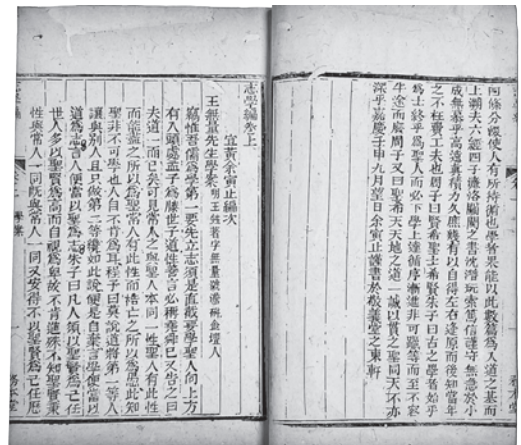 何條分縷使人有所持循也學者果能以此數篇為入道之基而
上溯夫六經四子濂洛關閩之書沈潛玩索篤信謹守無急於小
成無騖乎高遠真積力久庶幾有以自得左右逢原而後知當年
之不枉費工夫也周子曰賢希聖士希賢朱子曰古之學者始乎
為士終乎為聖人而必下學上達循序漸進非可躐等而至不容
半途而廢周子又曰聖希天天地之道一誠以貫之聖同天不亦
深乎嘉慶壬申九月望日余寅止謹書於敬義堂之東軒
志學編卷上
宜黃余寅止編次
王無量先生學案 明王 字無量號 金壇人
竊惟吾儒為學第一要先立志須是直截要學聖人向上方
有入頭處孟子為滕世子道性善言必稱堯舜已又告之曰
夫道一而已矣可見常人之與聖人本同一性聖人有此性
而能盡之所以為聖常人有此性而牿亡之所以為愚此知
聖非不可學也人自不肯為耳程子曰莫說道將第一等人
讓與別人且只做第二等纔如此說便是自棄言學便當以
道為志言人便當以聖為志朱子曰凡人須以聖賢為己任
世人多以聖賢為高而自視為卑故不肯進殊不知聖賢稟
性與常人一同既與常人一同又安得不以聖賢為己任歷
志學編 學案 務本堂